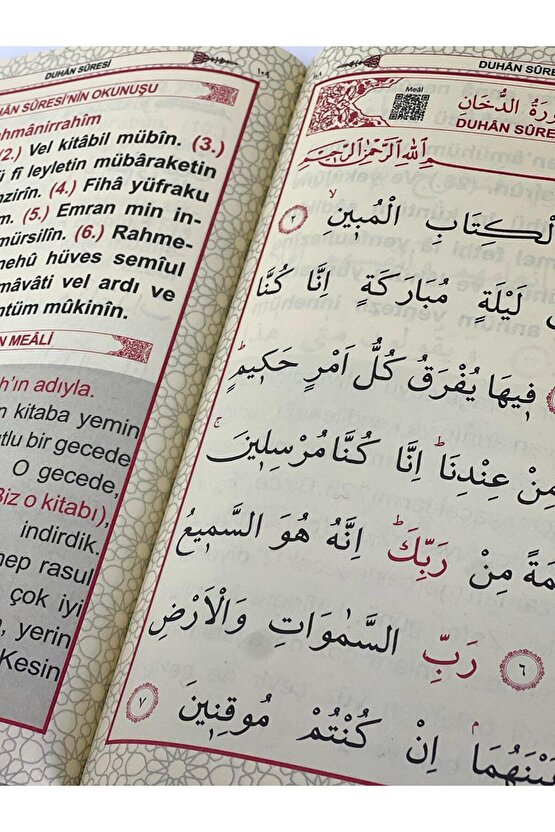 DUHÂN SÛRESİ
SÛRESİ'NİN OKUNUŞU
(2.) Vel kitâbil mübîn. (3.)
fî leyletin mübâraketin
(4.) Fihâ yüfraku
(5.) Emran min in-
mürsilîn. (6.) Rahme-
hüves semîul
vel ardı ve
mûkinîn.
MEÂLİ
adıyla.
kitaba yemin
bir gecede
O gecede,
Biz o kitabı),
indirdik.
rasul
çok iyi
yerin
Kesin
DUHÂN SÛRESİ
Meâl
الدُّخَانِ
DUHÂN
اللّٰهِ الرَّحْمٰنِ الرَّحٖيمِ
الْمُبٖينِ ﴿٢﴾
لَيْلَةٍ مُبَارَكَةٍ اِنَّا كُنَّا
فٖيهَا يُفْرَقُ كُلُّ اَمْرٍ حَكٖيمٍ
مِنْ عِنْدِنَا اِنَّا كُنَّا مُرْسِلٖينَ
مِنْ رَبِّكَ اِنَّهُ هُوَ السَّمٖيعُ
﴿٦﴾ رَبِّ السَّمٰوَاتِ وَالْاَرْضِ
اِنْ كُنْتُمْ مُوقِنٖينَ ﴿٧﴾